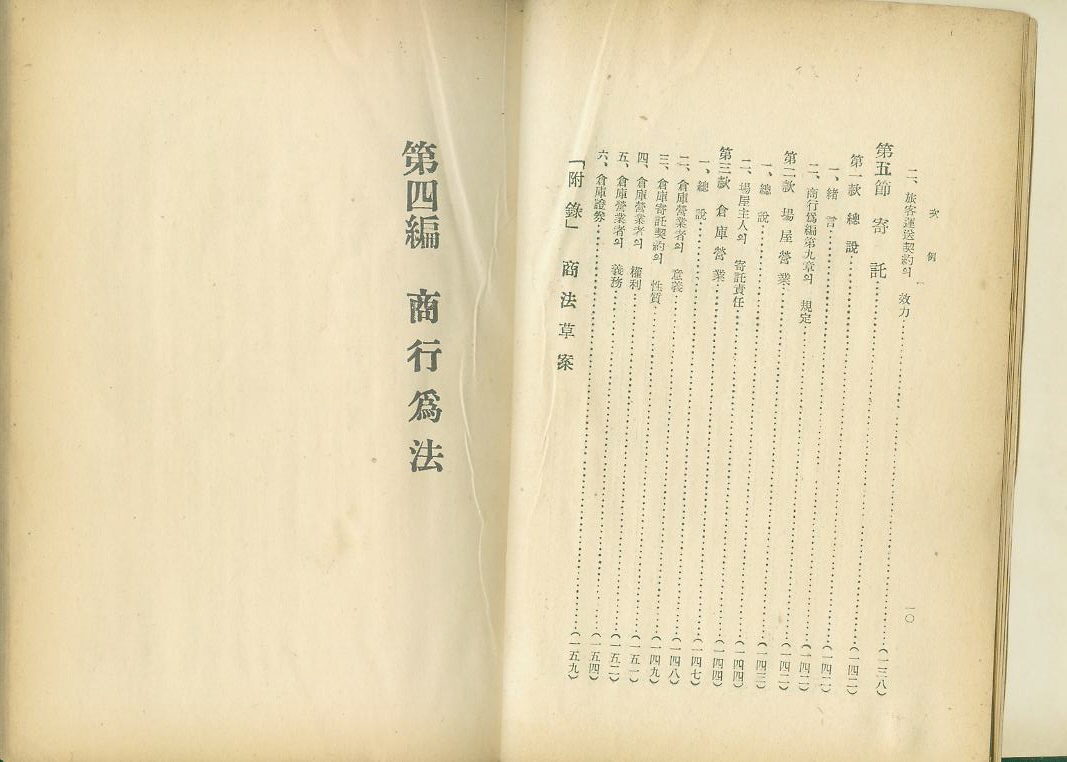 次例
二、旅客運送契約의 效力
第五節 寄託(一三八)
第一款 總說(一四二)
一、緖言(一四二)
二、商行爲編第九章의 規定(一四二)
第二款 場屋營業(一四二)
一、總說(一四三)
二、場屋主人의 寄託責任(一四四)
第三款 倉庫營業(一四四)
一、總說(一四七)
二、倉庫營業者의 意義(一四八)
三、倉庫寄託契約의 性質(一四九)
四、倉庫營業者의 權利(一五一)
五、倉庫營業者의 義務(一五二)
六、倉庫證券(一五四)
「附錄」 商法草案(一五九)
一〇
第四編 商行爲法